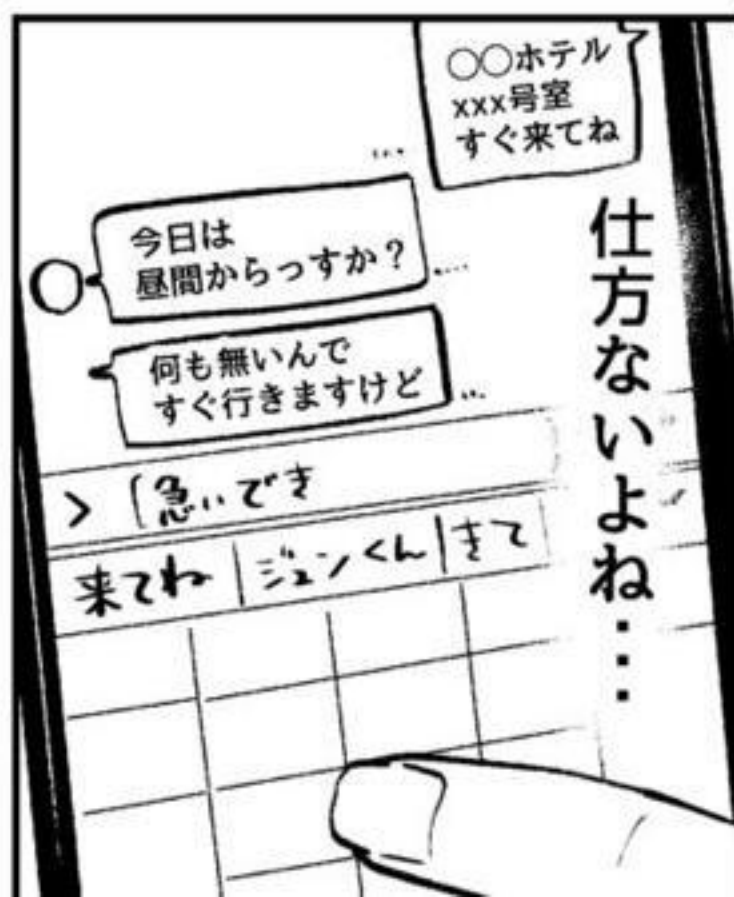 ○○ホテル
xxx号室
すぐ来てね
…
今日は
昼間からっすか？
…
何も無いんで
すぐ行きますけど
…
仕方ないよね…
> 急いでき
来てね
ジュンくん
きて